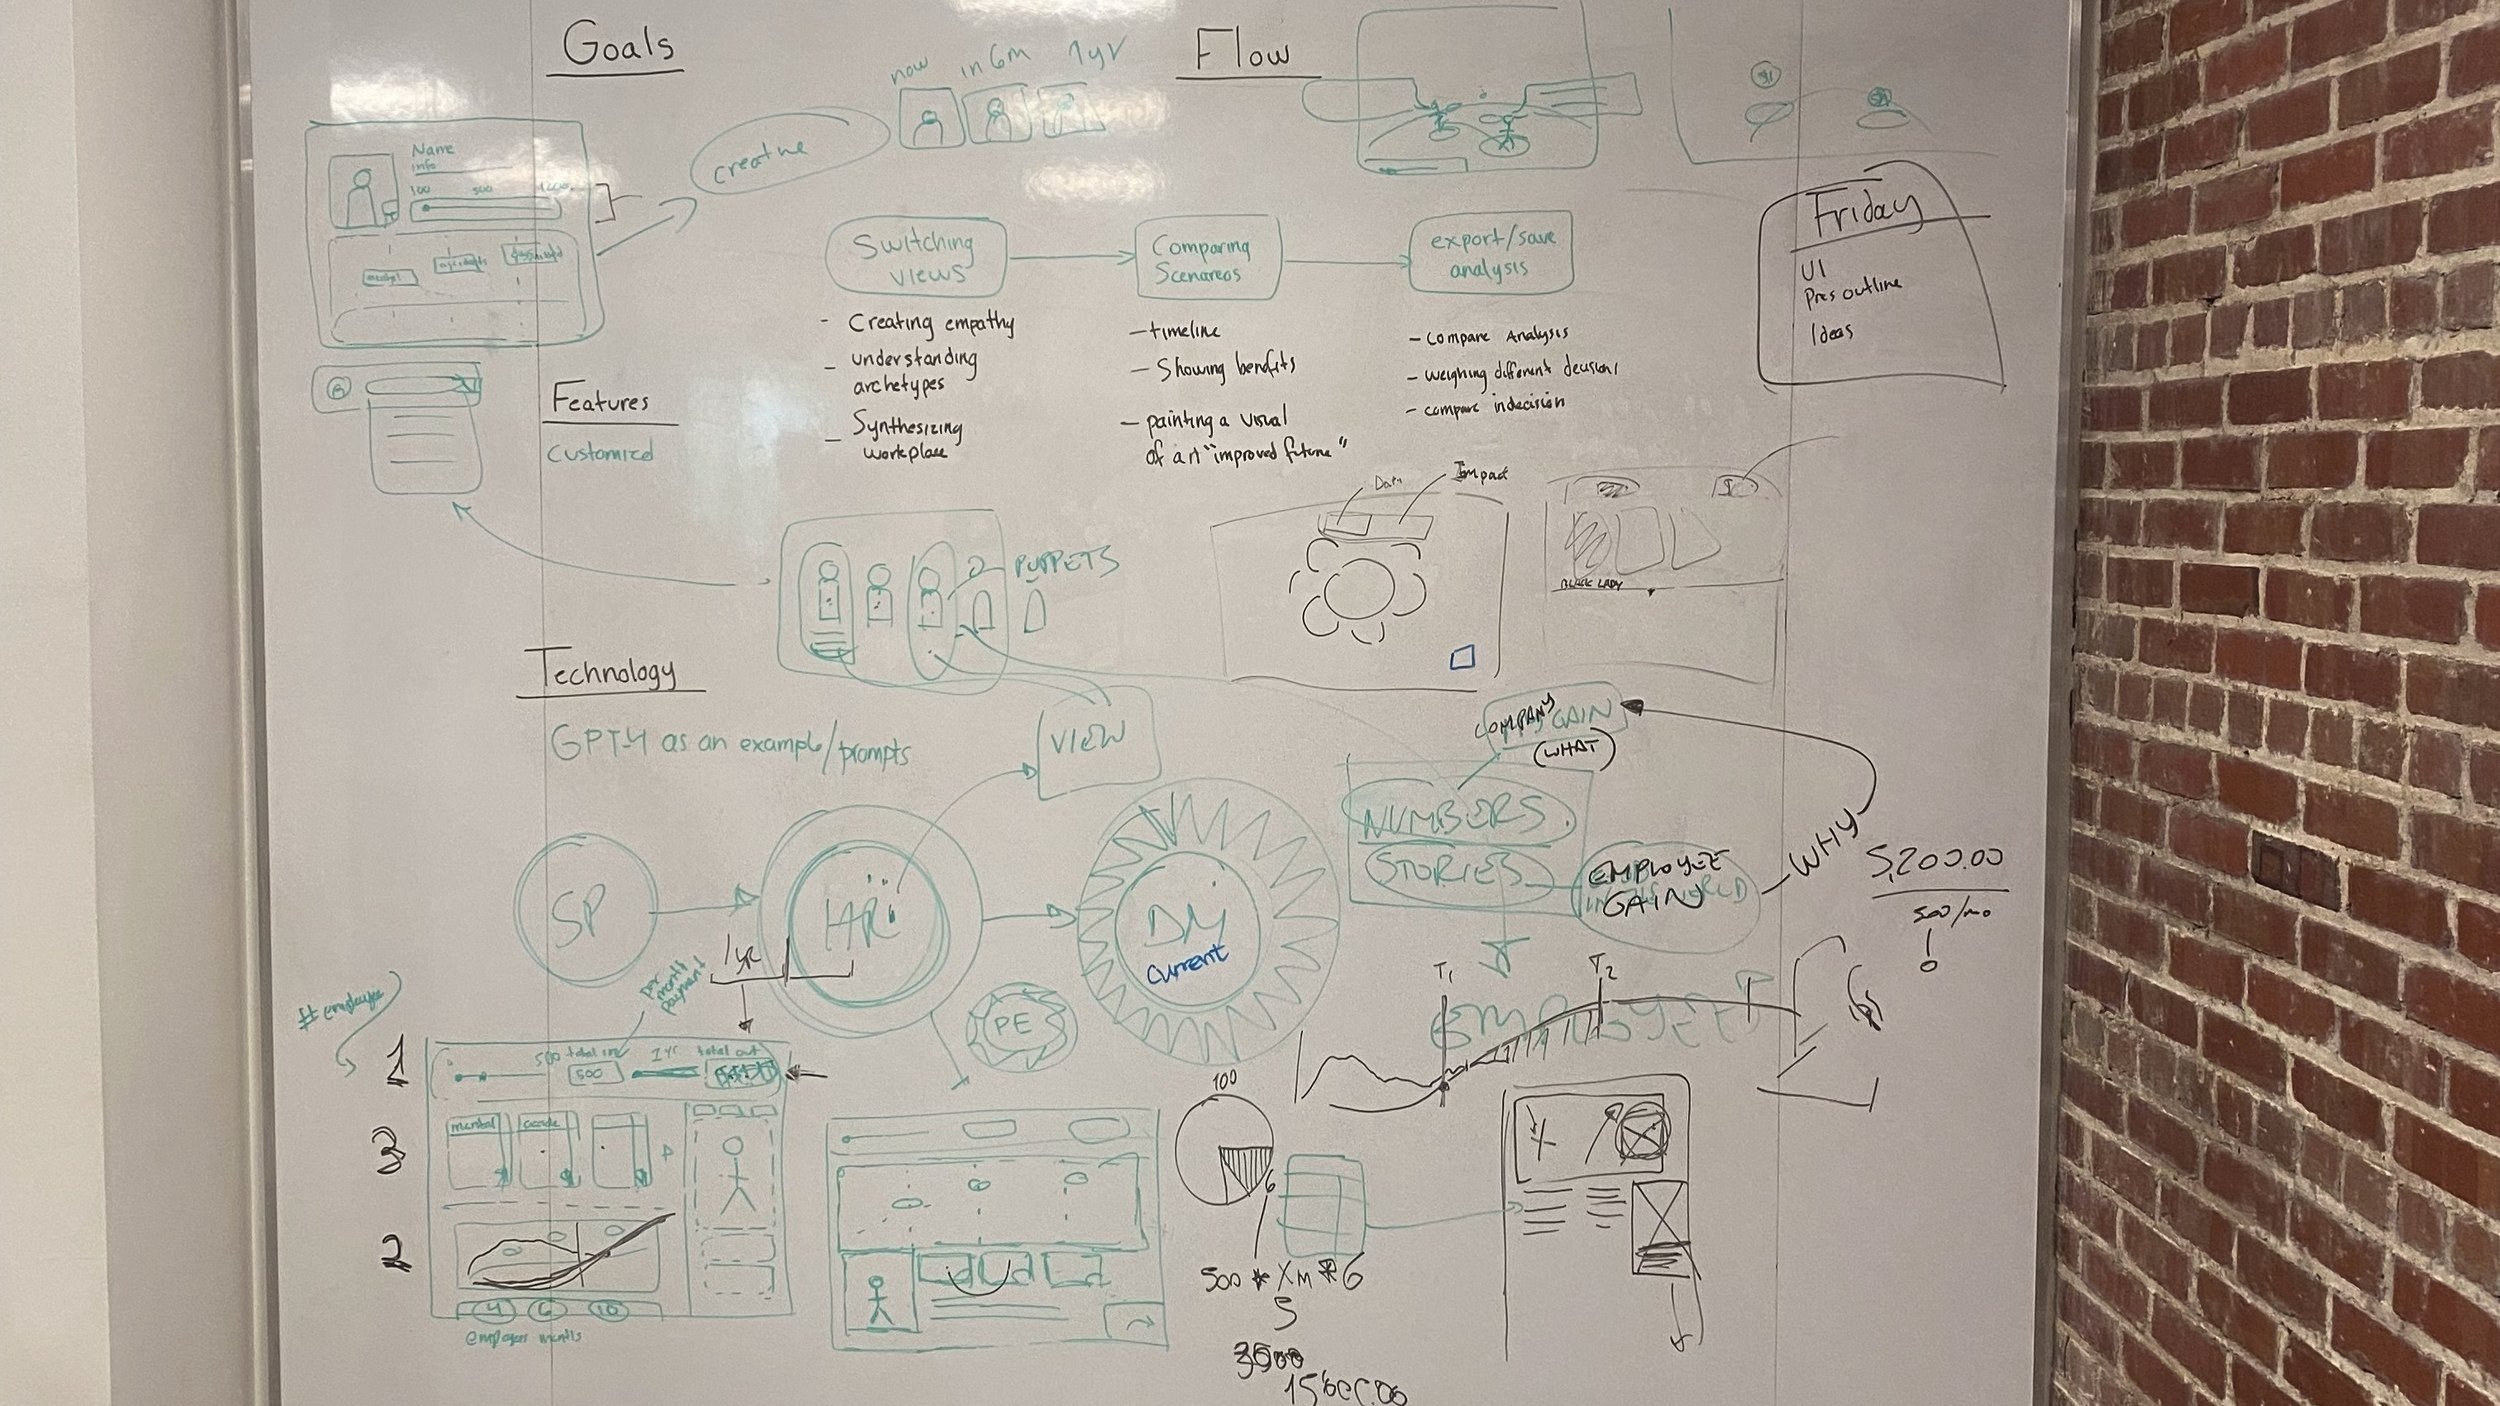 Goals
now
in 6m
1yr
Flow
Name
info
100
500
creative
Switching
views
Comparing
Scenareos
export/save
analysis
Friday
UI
Pres outline
Ideas
- Creating empathy
- understanding
archetypes
- Synthesizing
workplace
- timeline
- Showing benefits
- painting a visual
of an "improved future"
- compare Analysis
- weighing different decisions
- compare indecision
Features
Customized
Data
Impact
PUPPETS
BLACK LADY
Technology
GPT-4 as an example/prompts
VIEW
COMPANY GAIN
(WHAT)
NUMBERS
STORIES
EMPLOYEE
GAIN
WHY
5,200.00
500/mo
SP
HRi
DM
Current
PE
1yr
per
month
payment
#employee
T1
T2
1
500
1yr
total out
500
3
mental
2
4
6
10
employee months
100
6
500 * Xm * 6
5